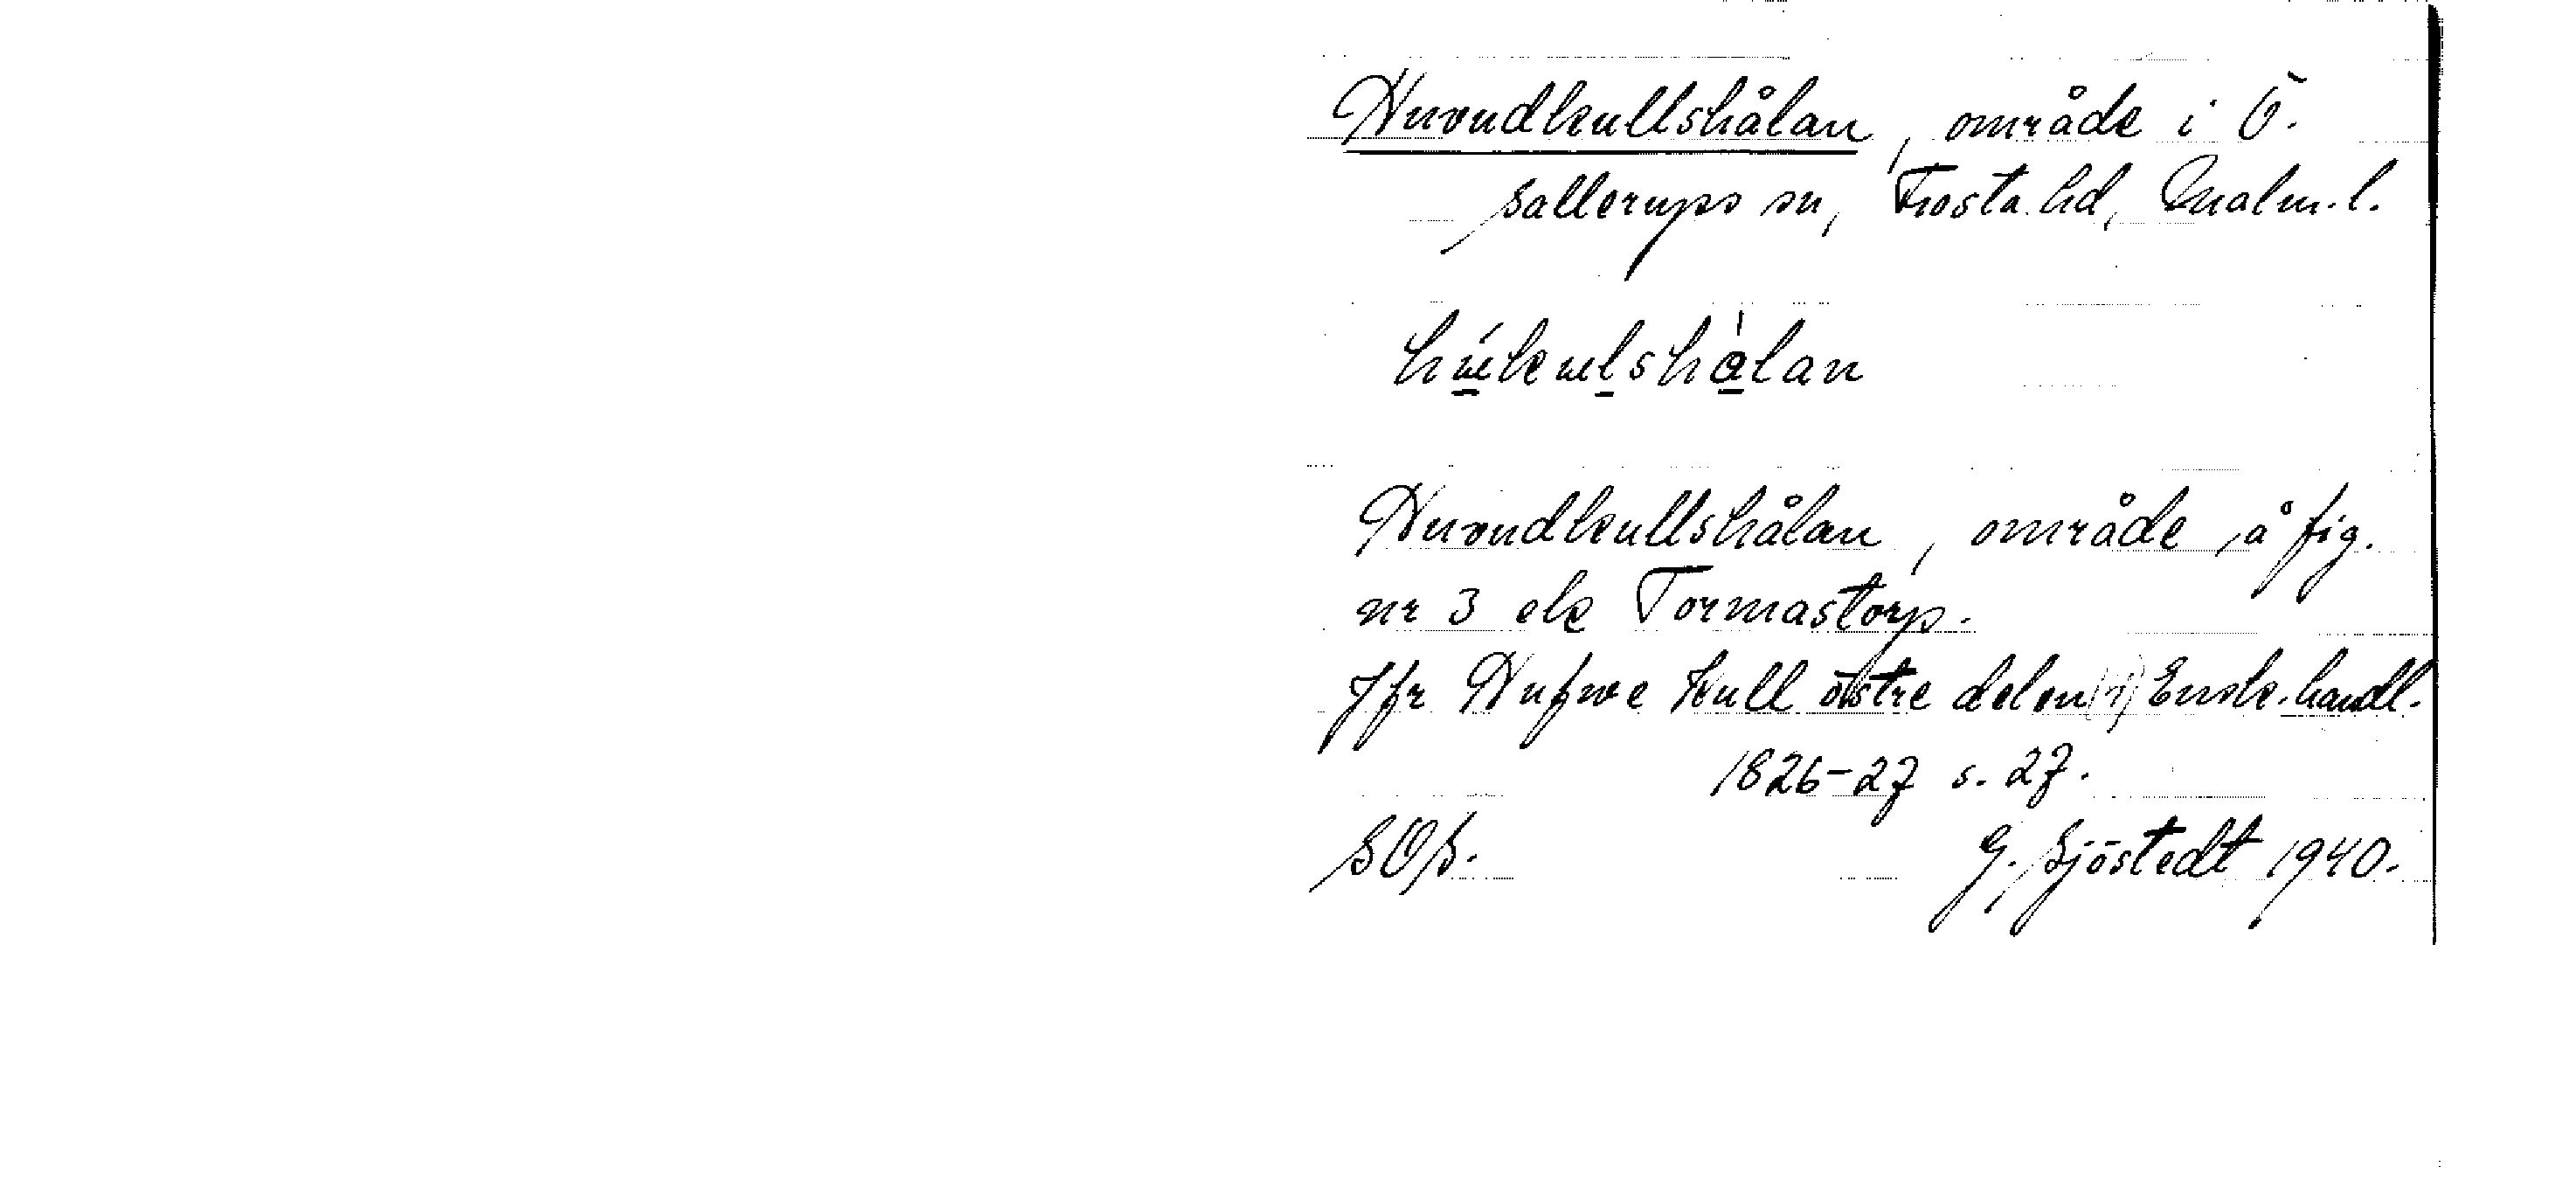 Huvudkullshålan, område i Ö.
Sallerups sn, Frosta hd, Malm. l.
húkulshålan
Huvudkullshålan, område å fig.
nr 3 ek Tormastorp.
Jfr Hufwe Kull östre delen (?) Ensk. handl.
1826-27 s. 27.
SOS.
G. Sjöstedt 1940.